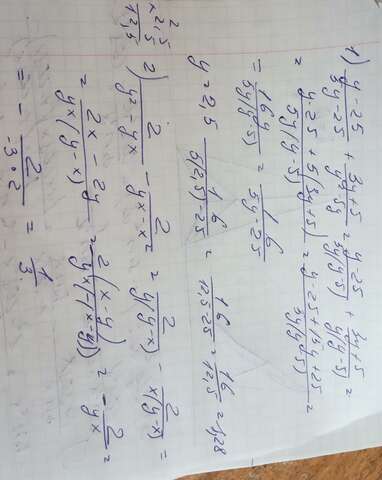 1) (y-25)/(5y-25) + (3y+5)/(y²-5y) = (y-25)/(5(y-5)) + (3y+5)/(y(y-5)) =
= (y²-25y+5(3y+5))/(5y(y-5)) = (y-25+15y+25)/(5y(y-5)) =
= 16y/(5y(y-5)) = 16/(5y-25)
y=2,5 16/(5(2,5)-25) = 16/(12,5-25) = 16/12,5 = 1,28
2) 2/(y²-yx) - 2/(yx-x²) = 2/(y(y-x)) - 2/(x(y-x)) =
= (2x-2y)/(yx(y-x)) = 2(x-y)/(yx(-(x-y))) = -2/(yx) =
= - 2/(-3·2) = 1/3
2,5
2,5